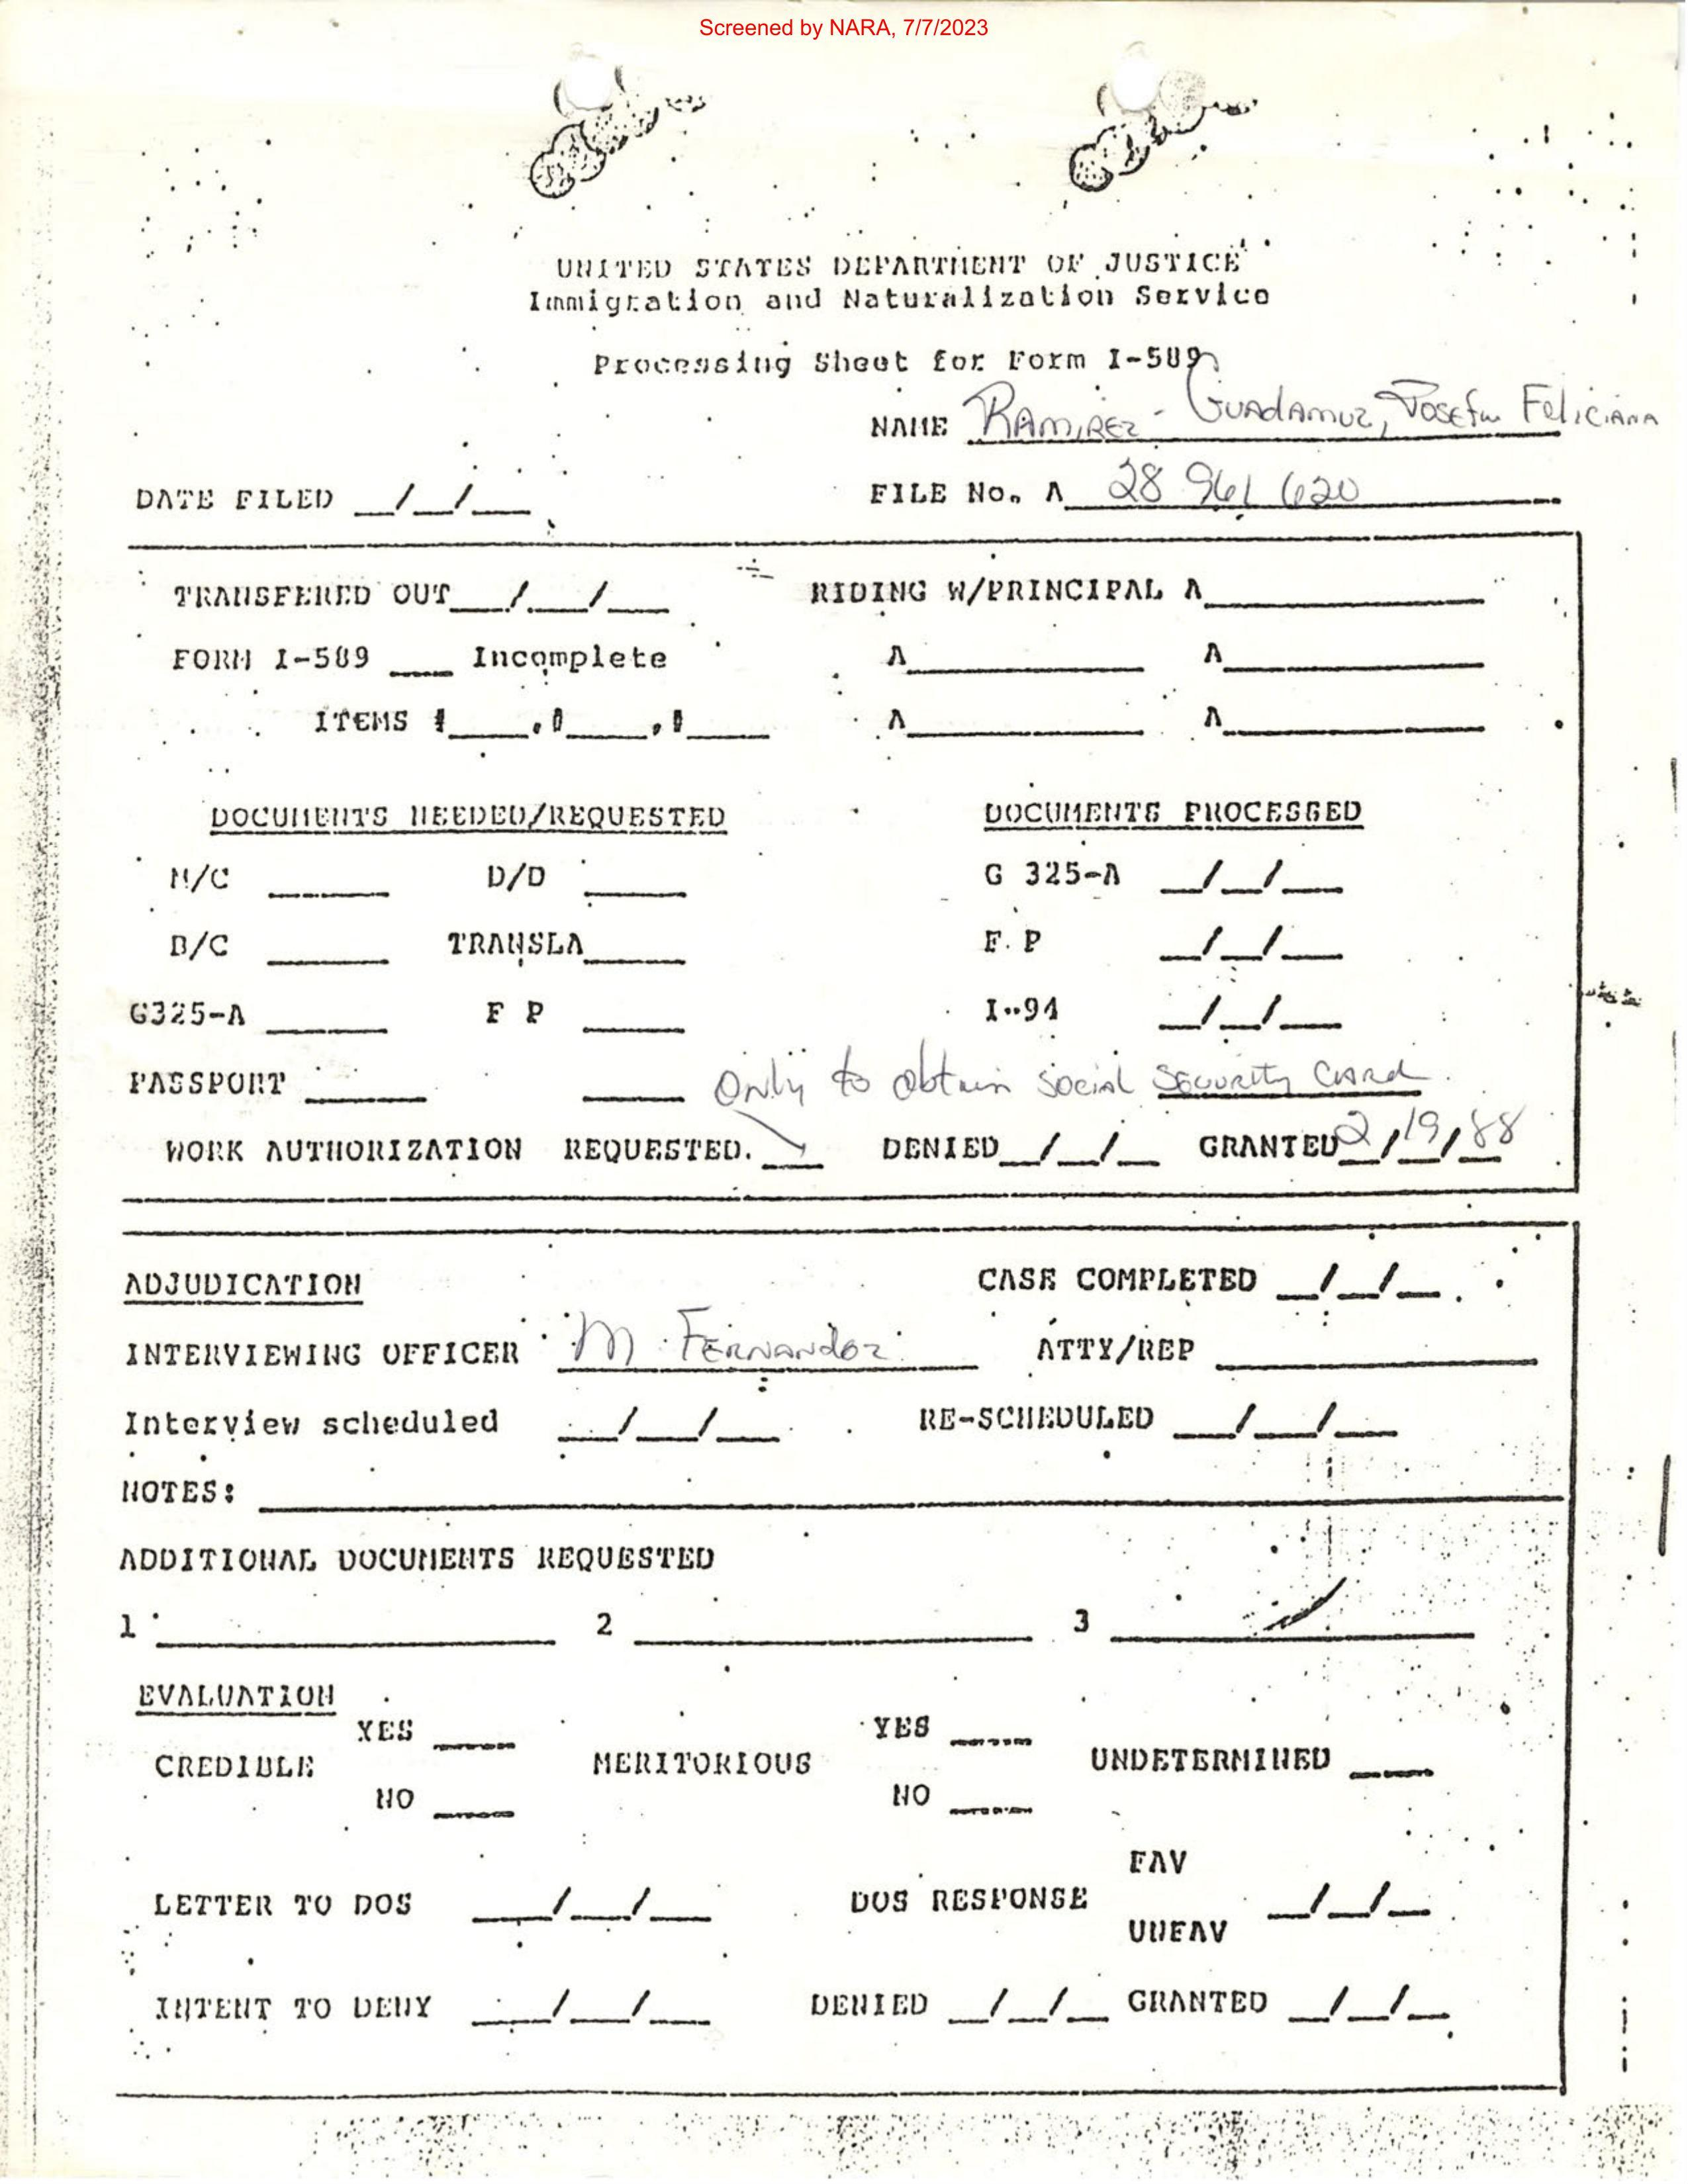 Screened by NARA, 7/7/2023
UNITED STATES DEPARTMENT OF JUSTICE
Immigration and Naturalization Service
Processing Sheet for Form I-589
NAME RAMIREZ - GUADAMUZ, JOSEFA FELICIANA
DATE FILED __/__/___ FILE No. A 28 961 620
TRANSFERED OUT___/___/___ RIDING W/PRINCIPAL A____________
FORM I-589 ___ Incomplete A____________ A____________
ITEMS #____,#____,#____ A____________ A____________
DOCUMENTS NEEDED/REQUESTED DOCUMENTS PROCESSED
M/C _____ D/D _____ G 325-A __/__/___
B/C _____ TRANSLA_____ F. P __/__/___
G325-A _____ F P _____ I-94 __/__/___
PASSPORT _____ _____ Only to obtain social SECURITY CARD.
WORK AUTHORIZATION REQUESTED. ___ DENIED__/__/__ GRANTED 2/19/88
ADJUDICATION CASE COMPLETED __/__/__.
INTERVIEWING OFFICER M. FERNANDEZ ATTY/REP ____________
Interview scheduled ___/___/___ RE-SCHEDULED ___/___/___
NOTES: ____________
ADDITIONAL DOCUMENTS REQUESTED
1 ____________ 2 ____________ 3 ____________
EVALUATION
YES ____ YES ____
CREDIBLE MERITORIOUS UNDETERMINED ____
NO ____ NO ____
FAV
LETTER TO DOS ___/___/___ DOS RESPONSE __/__/__
UNFAV
INTENT TO DENY ___/___/___ DENIED __/__/__ GRANTED __/__/__